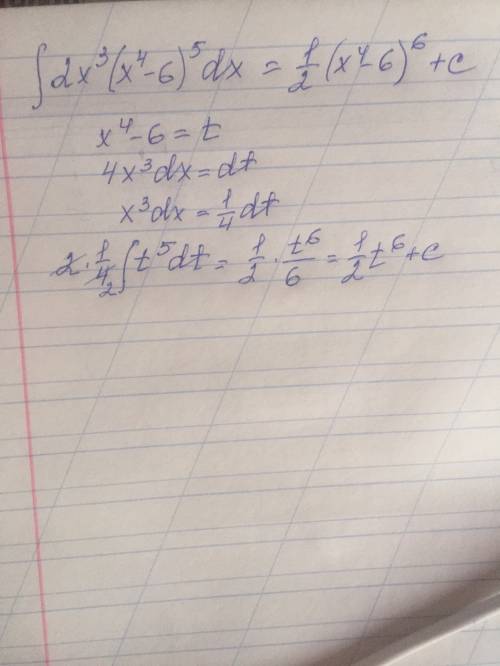 ∫2x³(x⁴-6)⁵dx = 1/2 (x⁴-6)⁶+c
x⁴-6=t
4x³dx=dt
x³dx=1/4 dt
2·1/4 2 ∫t⁵dt = 1/2 · t⁶/6 = 1/2 t⁶+c